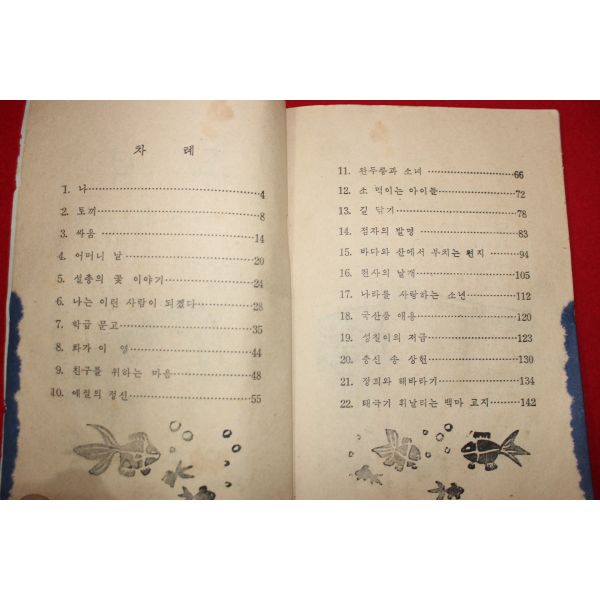 차 례
1. 나 4
2. 토끼 8
3. 싸움 14
4. 어머니 날 20
5. 설총의 꽃 이야기 24
6. 나는 이런 사람이 되겠다 28
7. 학급 문고 35
8. 화가 이 영 44
9. 친구를 위하는 마음 48
10. 예절의 정신 55
11. 완두콩과 소녀 66
12. 소 먹이는 아이들 72
13. 길 닦기 78
14. 점자의 발명 83
15. 바다와 산에서 부치는 편지 94
16. 천사의 날개 105
17. 나라를 사랑하는 소년 112
18. 국산품 애용 120
19. 성칠이의 저금 123
20. 충신 송 상현 130
21. 장희와 해바라기 134
22. 태극기 휘날리는 백마 고지 142